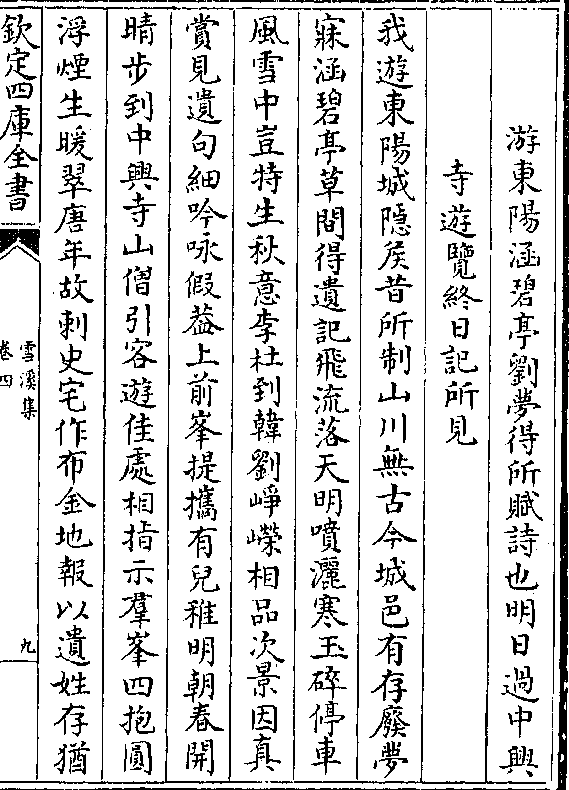 游東陽涵碧亭劉夢得所賦詩也明日過中興
寺遊覽終日記所見
我遊東陽城隐侯昔所制山川無古今城邑有存廢夢
寐涵碧亭草間得遺記飛流落天明噴灑寒玉碎停車
風雪中豈特生秋意李杜到韓劉崢嶸相品次景因真
賞見遺句細吟咏假葢上前峯提攜有兒稚明朝春開
晴步到中興寺山僧引客遊佳處相指示羣峯四抱圓
浮煙生暖翠唐年故刺史宅作布金地報以遺姓存猶
欽定四庫全書
雪溪集
卷四
九